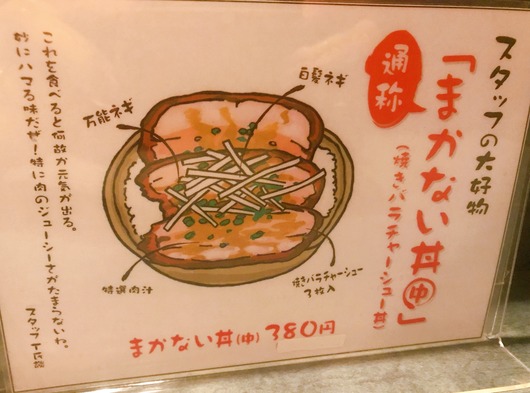 スタッフの大好物
通称
「まかない丼㊥」
(焼きバラチャーシュー丼)
白髪ネギ
万能ネギ
特選肉汁
焼きバラチャーシュー
3枚入
まかない丼(中) 380円
これを食べると何故か元気が出る。
妙にハマる味だぜ!特に肉のジューシーさがたまらないわ。
スタッフ